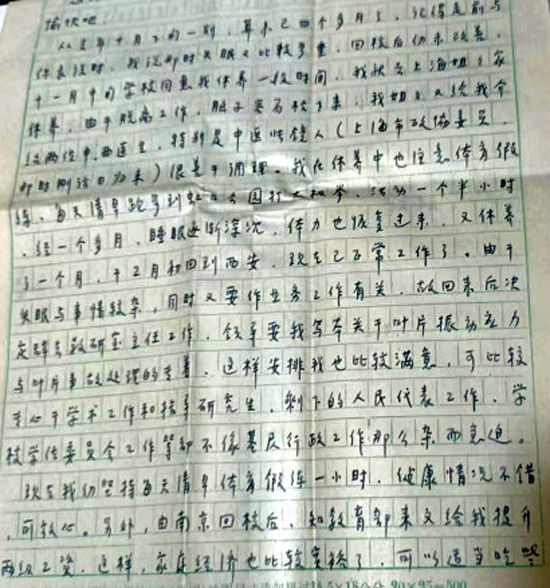 愉快吧
从去年十月 的一别,算来已四个多月了。记得是前与
你表谈时,我说那时失眠又比较多重,回校后仍未改善。
十一月中的学校同意我休养一段时间,我就去上海姐姐家
休养,由于脱离工作,脑子容易松下来,我姐姐又给我介
绍两位中、西医生,特别是中医 人(上海市政协委员,
那时刚访日归来)很善于调理。我在休养中也注意体育锻
练,每天清早跑步到虹口公园打太极拳,活动一个半小时
,经一个多月,睡眠逐渐深沉,体力也恢复过来,又休养
了一个月,于2月初回到西安,现在已正常工作了。由于
失眠与事情较杂,同时又要作业务工作有关,故回来后决
定辞去教研室主任工作,领导要我写本关于叶片振动应力
与叶片事故处理的专著,这样安排我也比较满意,可比较
专心于学术工作和指导研究生,剩下的人民代表工作、学
校学位委员会工作等却不像基层行政工作那么杂而急迫。
现在我仍坚持每天清早体育锻练一小时,健康情况不错
,可放心。另外,由南京回校后,知教育部来文给我提升
两级工资,这样,家庭经济也比较宽裕了,可以适当吃些
18.5×18公分 20×25=500